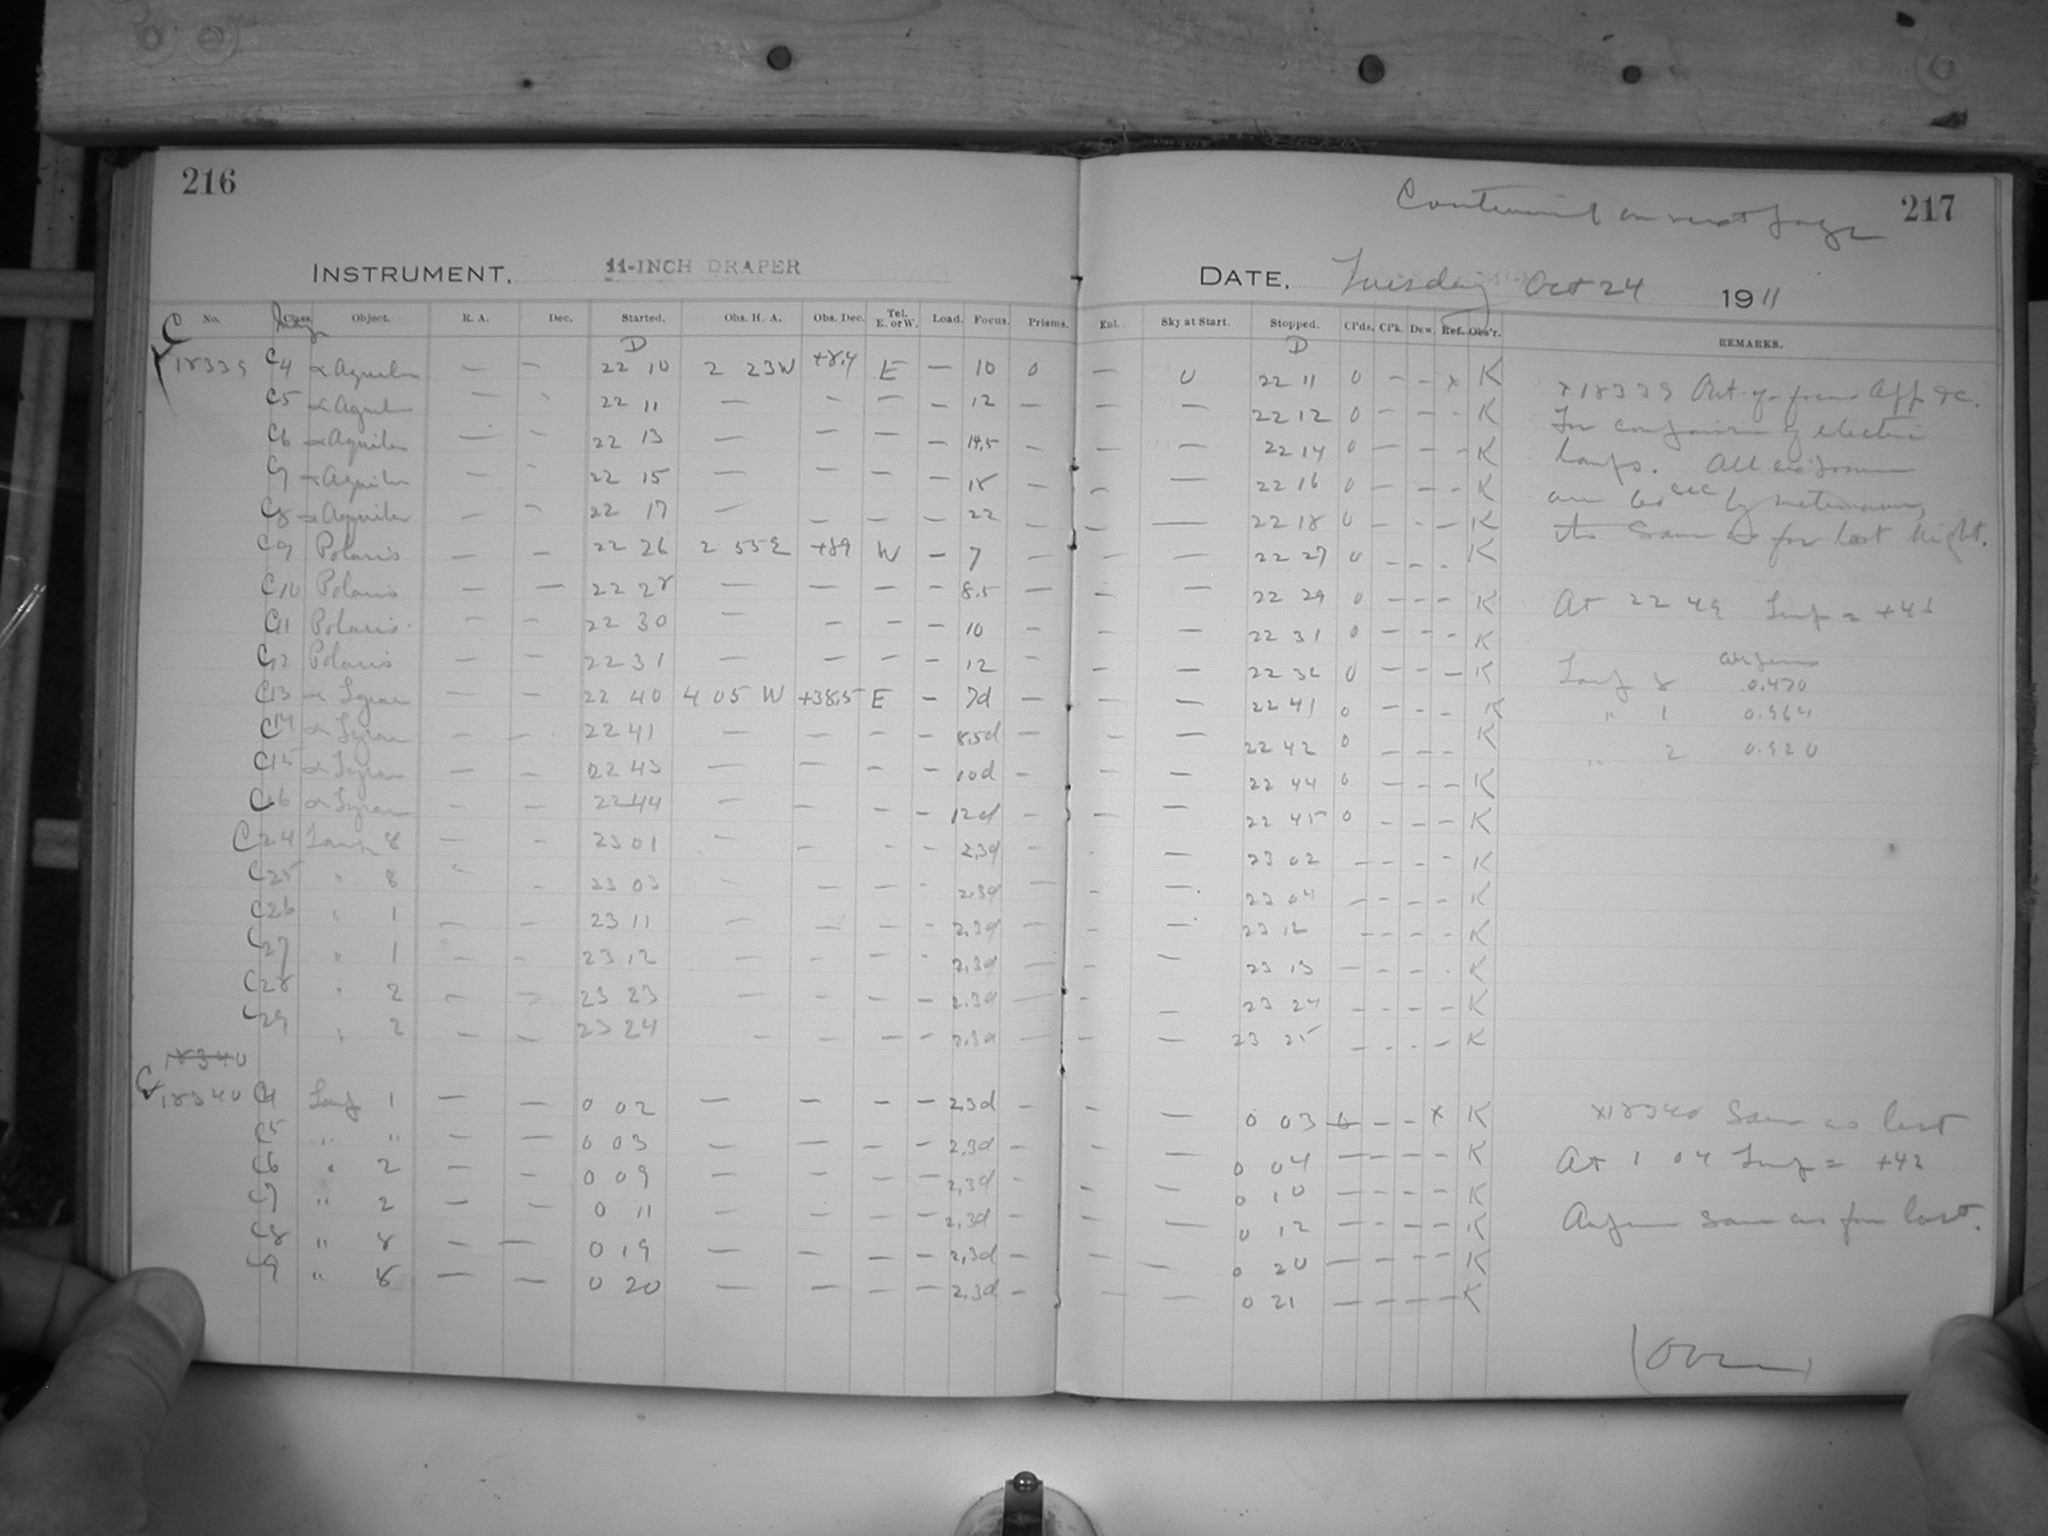 216
217
Continued on next page
INSTRUMENT. 11-INCH DRAPER
DATE. Tuesday Oct 24 1911
No. Class. Object. R. A. Dec. Started. Obs. H. A. Obs. Dec. Tel. E. or W. Load. Focus. Prisms. Enl. Sky at Start. Stopped. Cl'ds. Cl'k. Dew. Ref. Obs'r. REMARKS.
D D
C 18339 C4 α Aquilae — — 22 10 2 23W +8.4 E — 10 0 — 0 22 11 0 - - x K
C5 α Aquilae — - 22 11 — - - — 12 — — — 22 12 0 - - - K
C6 α Aquilae — - 22 13 — — — — 14.5 — — — 22 14 0 - - - K
C7 α Aquilae — - 22 15 — — — — 18 — - — 22 16 0 - - - K
C8 α Aquilae — - 22 17 — — — — 22 — — — 22 18 0 - - - K
C9 Polaris — — 22 26 2 55E +89 W — 7 — — — 22 27 0 - - - K
C10 Polaris — — 22 28 — — — — 8.5 — - — 22 29 0 - - - K
C11 Polaris — - 22 30 — — — — 10 — - — 22 31 0 - - - K
C12 Polaris — — 22 31 — — — — 12 — - — 22 32 0 - - - K
C13 α Lyrae — — 22 40 4 05 W +38.5 E — 7d — — — 22 41 0 - - - K
C14 α Lyrae — — 22 41 — — - - 8.5d — — — 22 42 0 - - - K
C15 α Lyrae — — 22 43 — — - — 10d - — — 22 44 0 - - - K
C16 α Lyrae — — 22 44 — — — — 12d - — — 22 45 0 - - - K
C24 Lamp 8 — - 23 01 - - - - 2.3d — — 23 02 - - - - K
C25 " 8 - - 23 03 - — — - 2.3d — - — 23 04 - - - - K
C26 " 1 — — 23 11 — - — - 2.3d — - — 23 12 - - - - K
C27 " 1 - - 23 12 — — — - 2.3d — - — 23 13 — - - - K
C28 " 2 — — 23 23 — — — - 2.3d — — 23 24 - - - - K
C29 " 2 — — 23 24 - - — - 2.3d — - — 23 25 - - - - K
18340
C 18340 C4 Lamp 1 — — 0 02 — — — — 2.3d - - — 0 03 - - - x K
C5 " " — — 0 03 — — — — 2.3d - - — 0 04 - - - - K
C6 " 2 — — 0 09 — — — — 2.3d - - — 0 10 - - - - K
C7 " 2 — — 0 11 — — — — 2.3d - - — 0 12 - - - - K
C8 " 8 — — 0 19 — — — — 2.3d — — — 0 20 - - - - K
C9 " 8 — — 0 20 — — — — 2.3d - — — 0 21 - - - - K
x18339 Out of focus App &c.
For comparison of electric
lamps. All exposures
are 60 sec by metronome,
Same as for last night.
At 22 49 Temp =
Lamp 8 0.470
" 1 0.564
" 2 0.520
x18340 Same as last
At 1 04 Temp = +42
Same as for last.
(Over)